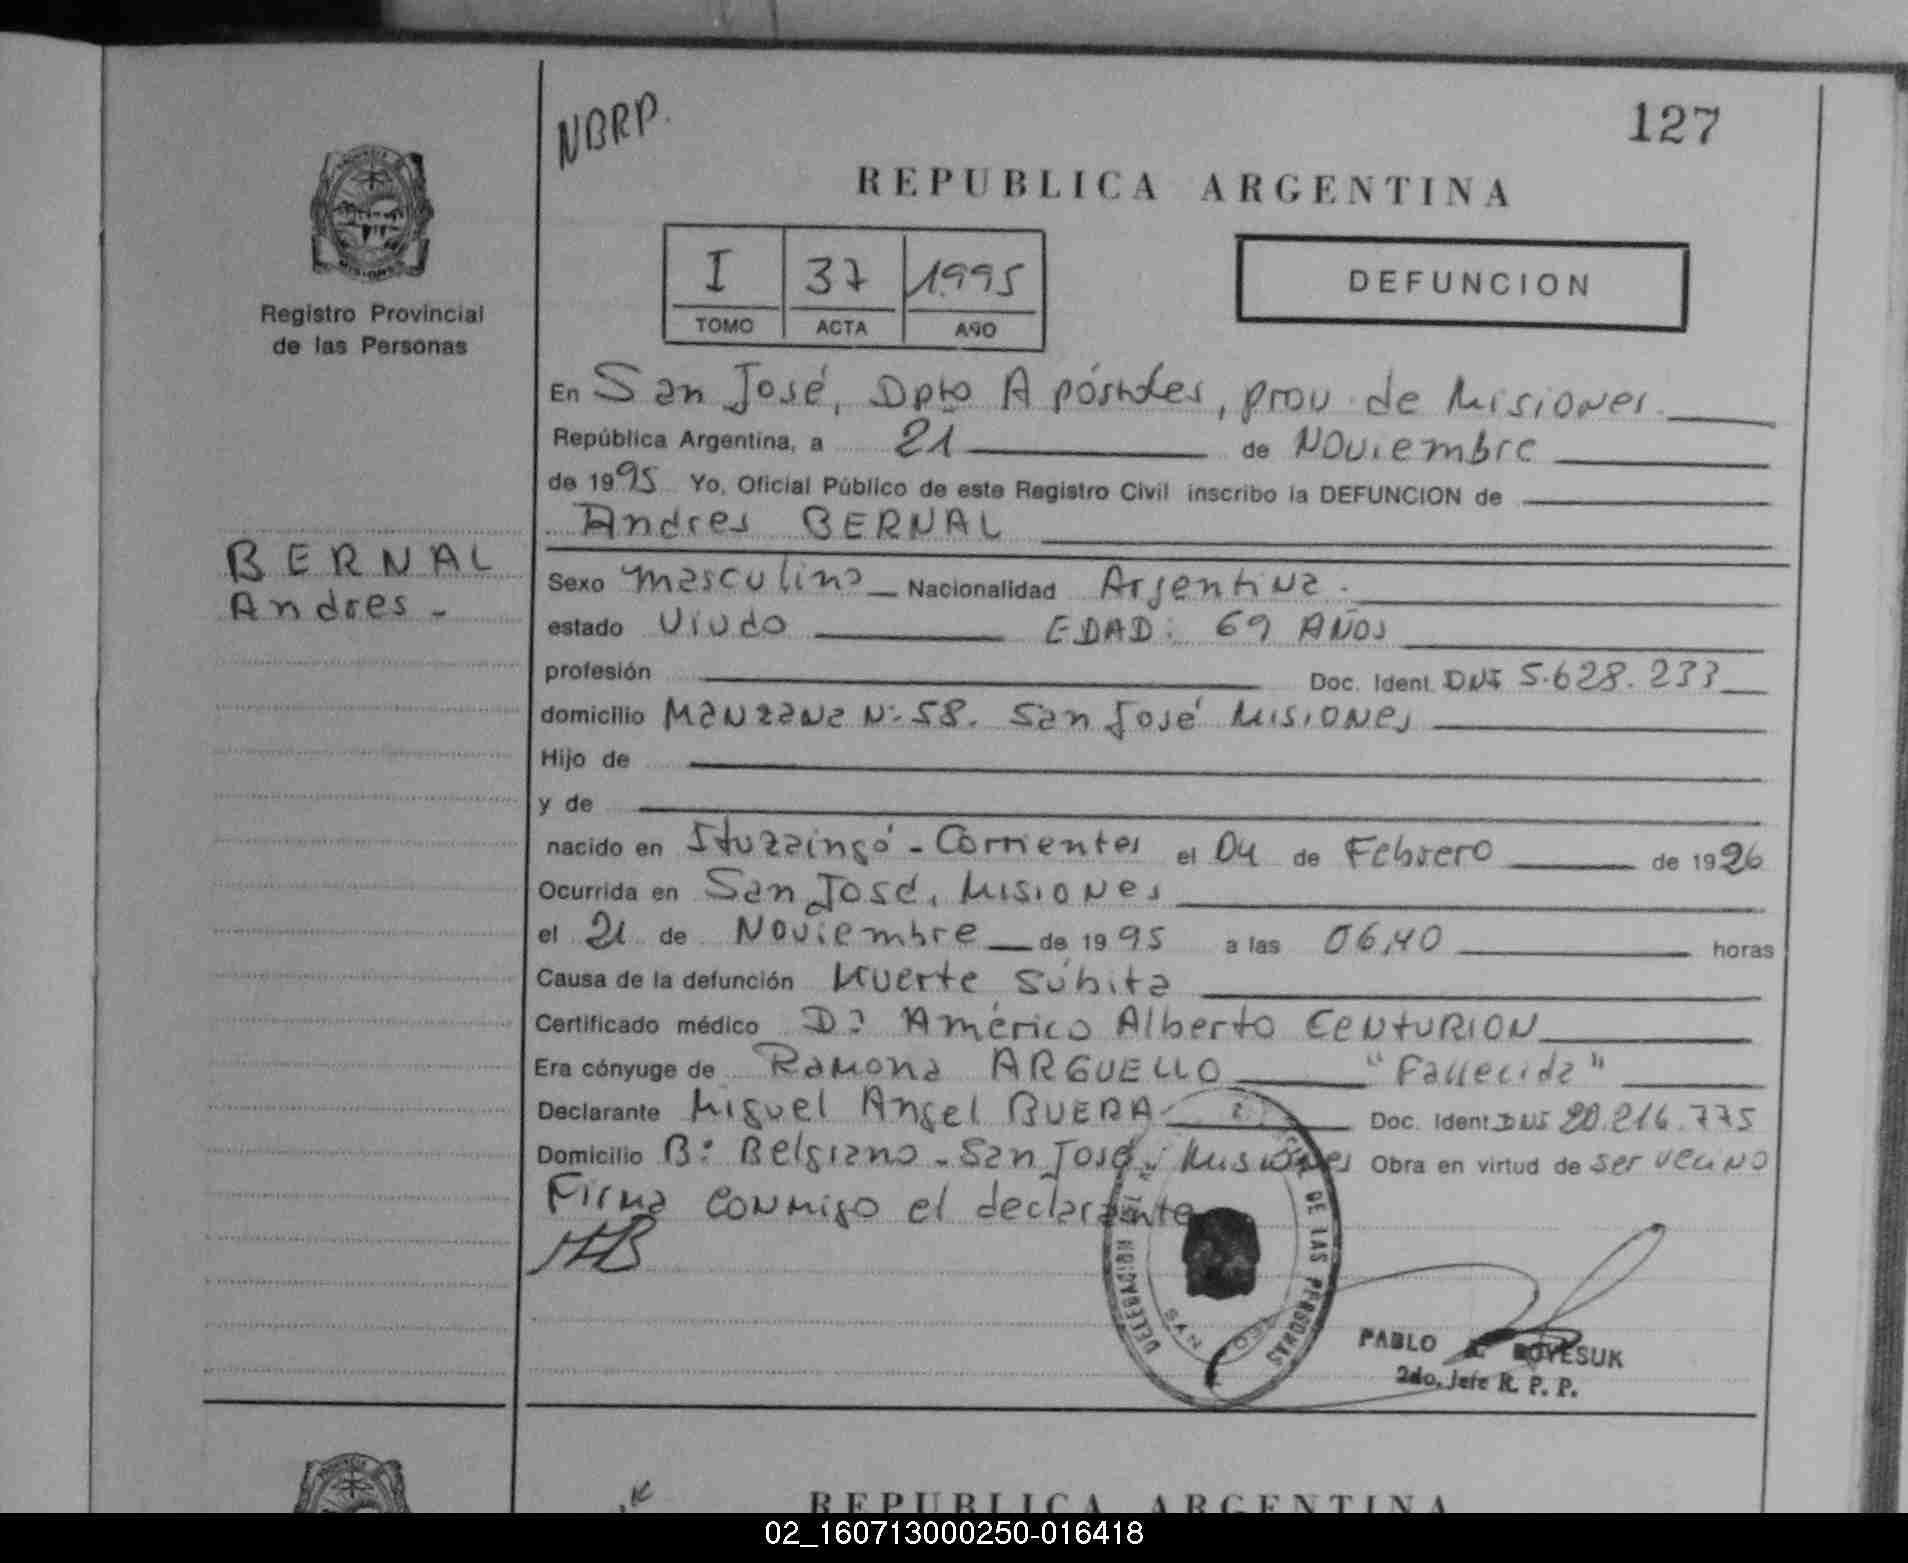 NBRP.
127
REPUBLICA ARGENTINA
I 37 1995
TOMO ACTA AÑO
DEFUNCION
Registro Provincial
de las Personas
En San José, Dpto Apóstoles, prov. de Misiones.
República Argentina, a 21 de Noviembre
de 1995 Yo, Oficial Público de este Registro Civil inscribo la DEFUNCION de
Andres BERNAL
BERNAL
Andres -
Sexo masculino Nacionalidad Argentina.
estado Viudo EDAD: 69 AÑOS
profesión Doc. Ident. DNI 5.628.233
domicilio Manzana Nº 58. San José Misiones
Hijo de
y de
nacido en Ituzaingó - Corrientes el 04 de Febrero de 1926
Ocurrida en San José, Misiones
el 21 de Noviembre de 1995 a las 06,40 horas
Causa de la defunción Muerte Súbita
Certificado médico Dr. Américo Alberto CENTURION
Era cónyuge de Ramona ARGUELLO "Fallecida"
Declarante Miguel Angel BUERA Doc. Ident. DNI 20.216.775
Domicilio Bº Belgrano - San José, Misiones Obra en virtud de ser vecino
Firma conmigo el declarante
DELEGACION DE LAS PERSONAS
SAN
PABLO BOYESUK
2do. Jefe R. P. P.
REPUBLICA ARGENTINA
02_160713000250-016418